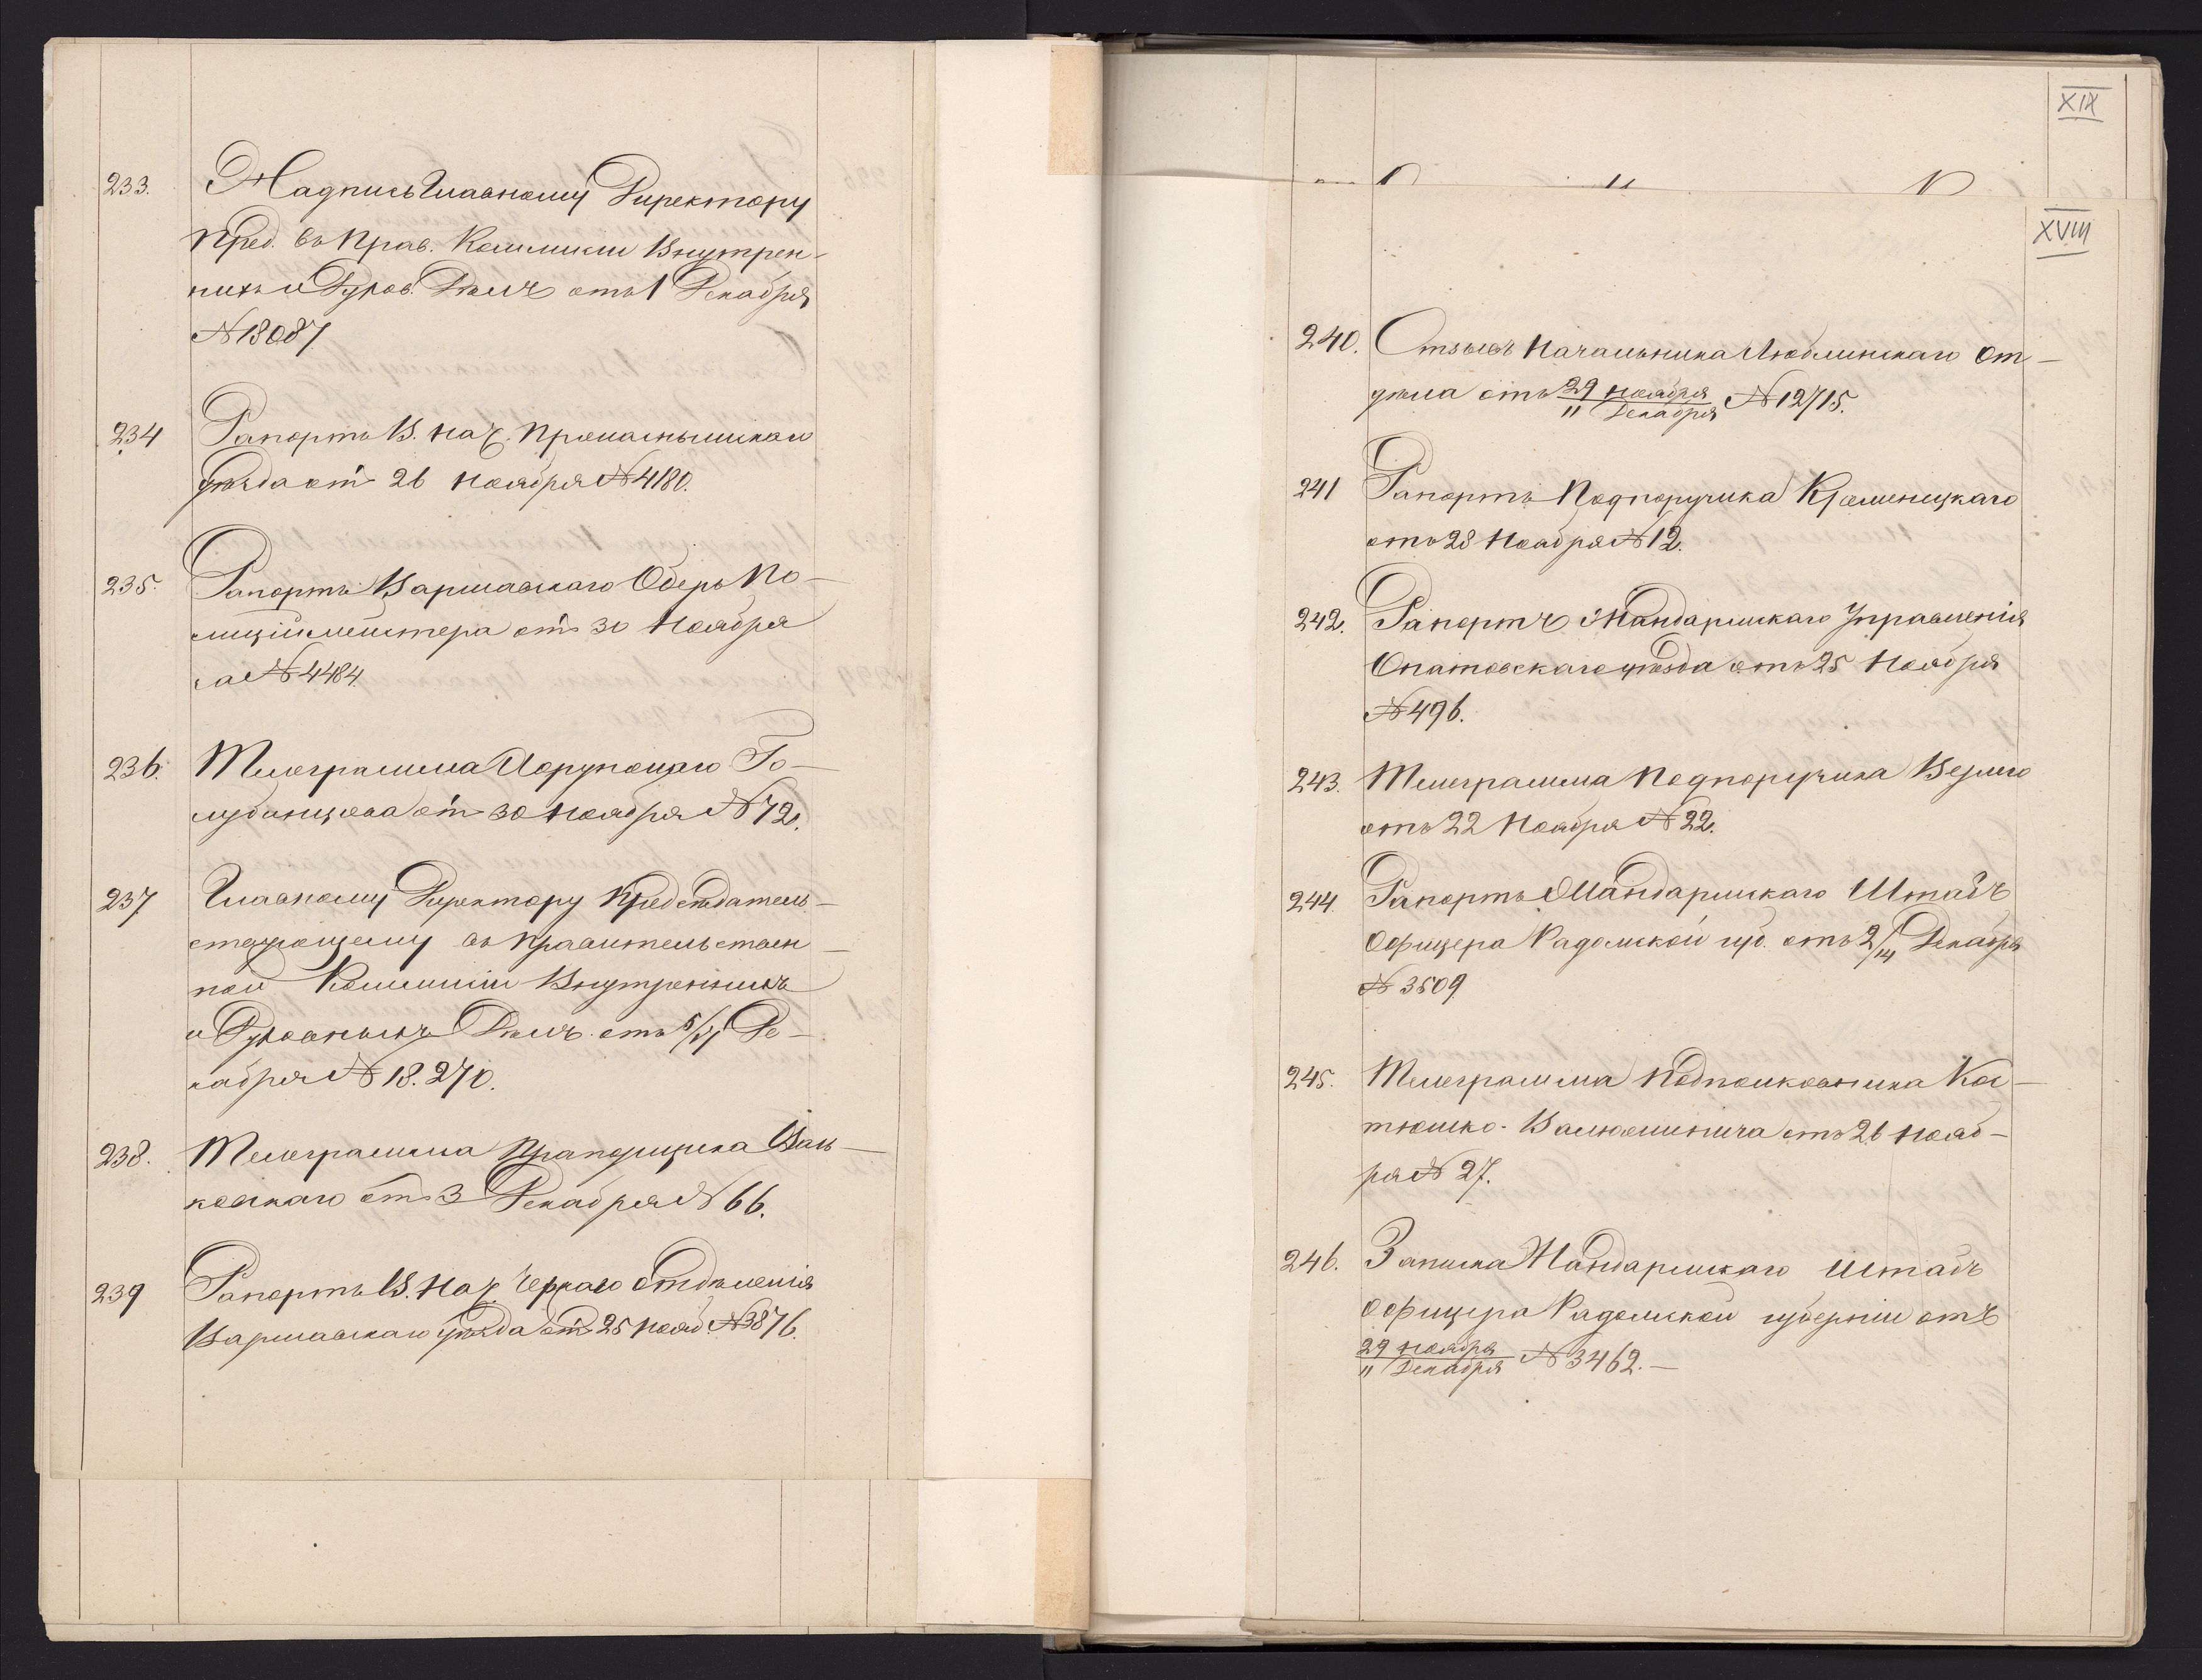 233. Надпись Главному Директору
Пред. въ Прав. Коммисіи Внутрен-
нихъ и Духов. Дѣлъ отъ 1 Декабря
№ 18087
234 Рапортъ В. Нач. Праснышскаго
уѣзда отъ 26 Ноября № 4180.
235. Рапортъ Варшавскаго Оберъ По-
лиціймейстера отъ 30 Ноября
за № 4484.
236. Телеграмма Порутчика Го-
лубинцова отъ 30 Ноября № 72.
237. Главному Директору Предсѣдатель-
ствующему въ Правительствен-
ной Коммисіи Внутреннихъ
и Духовныхъ Дѣлъ отъ 5/17 Де-
кабря № 18.270.
238. Телеграмма Прапорщика Вань-
ковскаго отъ 3 Декабря № 66.
239 Рапортъ В. Нач. Черскаго отдѣленія
Варшавскаго уѣзда отъ 25 Нояб. № 3876.
XIX
XVIII
240. Отзывъ Начальника Люблинскаго От-
дѣла отъ 29 Ноября / 11 Декабря № 12715.
241 Рапортъ Подпоручика Кременецкаго
отъ 28 Ноября № 12.
242. Рапортъ Жандармскаго Управленія
Опатовскаго уѣзда отъ 25 Ноября
№ 496.
243. Телеграмма Подпоручика
отъ 22 Ноября № 22.
244. Рапортъ Жандармскаго Штабъ
Офицера Радомской губ. отъ 2/14 Декабря
№ 3509
245. Телеграмма Подполковника Кос-
тюшко-Валюжинича отъ 26 Нояб-
ря № 27.
246. Записка Жандармскаго Штабъ
Офицера Радомской губерніи отъ
29 Ноября / 11 Декабря № 3462.-